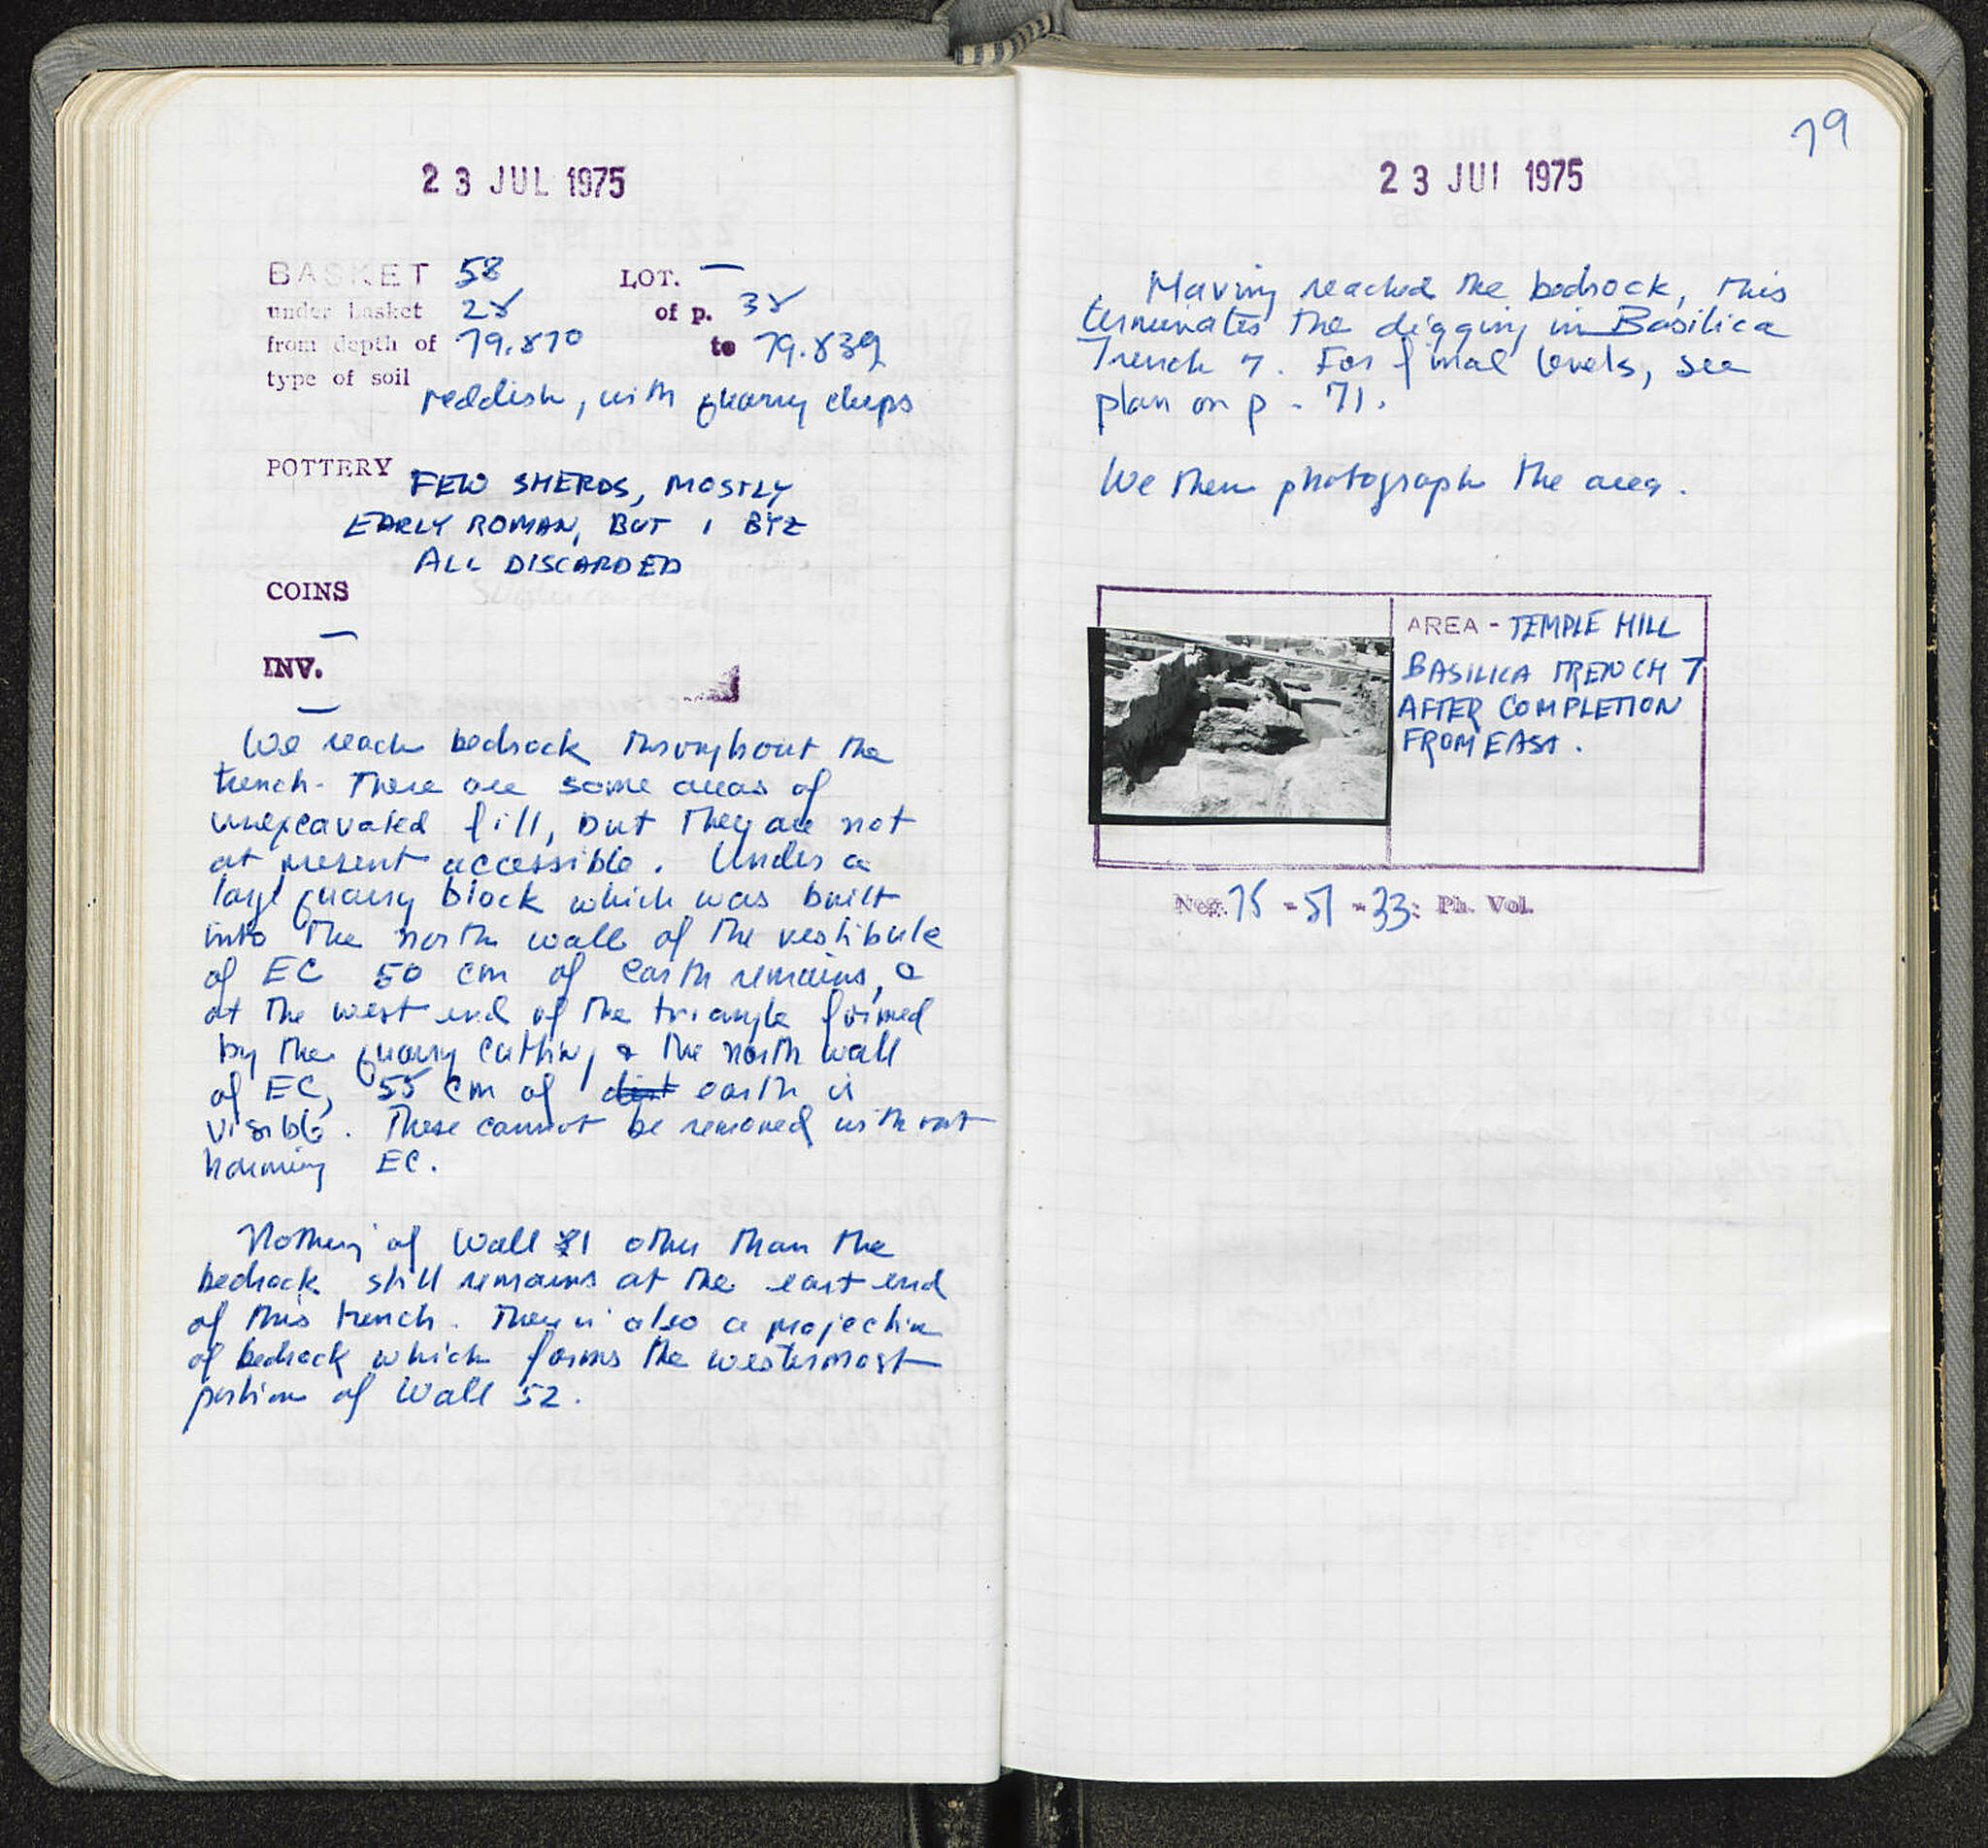 23 JUL 1975
BASKET 58 LOT. —
under basket 28 of p. 38
from depth of 79.870 to 79.839
type of soil
reddish, with quarry chips
POTTERY FEW SHERDS, MOSTLY
EARLY ROMAN, BUT 1 BYZ
ALL DISCARDED
COINS
—
INV.
—
We reach bedrock throughout the
trench. There are some areas of
unexcavated fill, but they are not
at present accessible. Under a
large quarry block which was built
into the north wall of the vestibule
of EC 50 cm of earth remains, &
at the west end of the triangle formed
by the quarry cutting & the north wall
of EC, 55 cm of dirt earth is
visible. These cannot be removed without
harming EC.
Nothing of Wall 81 other than the
bedrock still remains at the east end
of this trench. There is also a projection
of bedrock which forms the westernmost
portion of Wall 52.
79
23 JUL 1975
Having reached the bedrock, this
terminates the digging in Basilica
Trench 7. For final levels, see
plan on p. 71.
We then photograph the area.
AREA - TEMPLE HILL
BASILICA TRENCH 7
AFTER COMPLETION
FROM EAST.
Neg. 75 - 51 - 33: Ph. Vol.